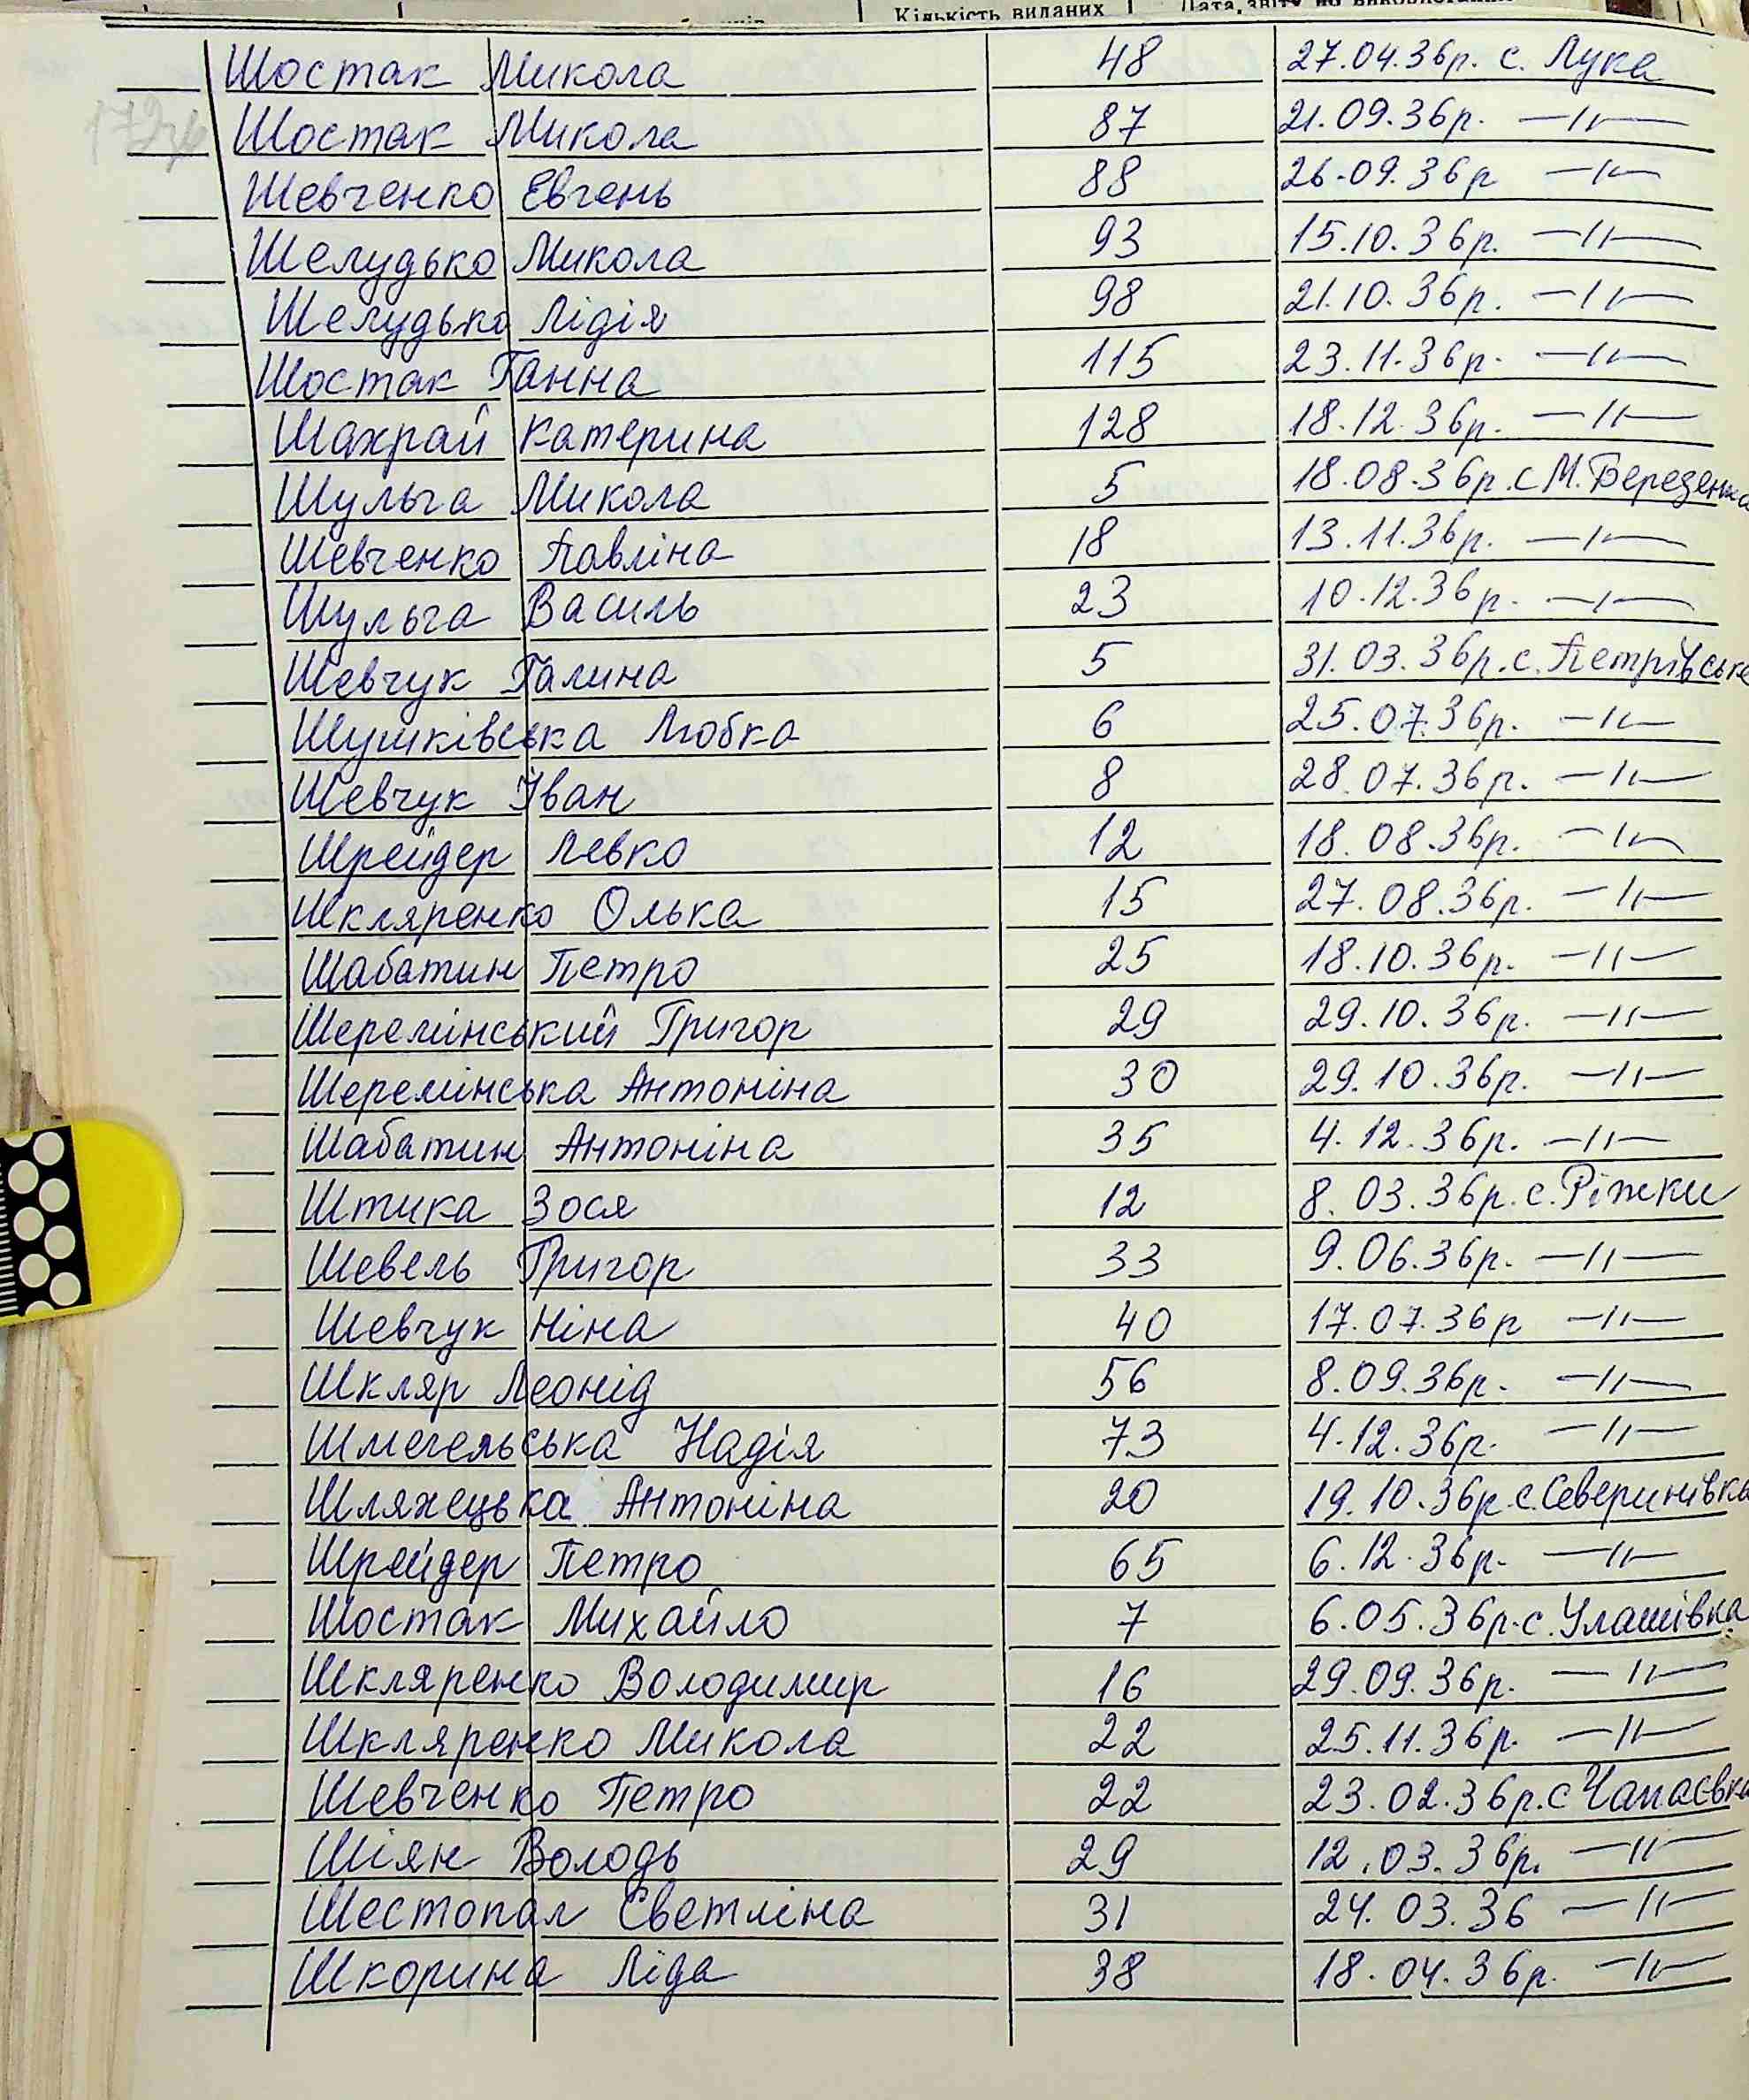 Кількість виданих
Шостак Микола 48 27.04.36р. с. Лука
Шостак Микола 87 21.09.36р. —11—
Шевченко Евгень 88 26.09.36р —11—
Шелудько Микола 93 15.10.36р. —11—
Шелудько Лідія 98 21.10.36р. —11—
Шостак Ганна 115 23.11.36р. —11—
Шахрай Катерина 128 18.12.36р. —11—
Шульга Микола 5 18.08.36р. с М. Березенка
Шевченко Павліна 18 13.11.36р. —1—
Шульга Василь 23 10.12.36р. —1—
Шевчук Галина 5 31.03.36р. с. Петрівське
Шушківська Любка 6 25.07.36р. —11—
Шевчук Іван 8 28.07.36р. —11—
Шрейдер Левко 12 18.08.36р. —11—
Шкляренко Олька 15 27.08.36р. —11—
Шабатин Петро 25 18.10.36р. —11—
Шеремінський Григор 29 29.10.36р. —11—
Шеремінська Антоніна 30 29.10.36р. —11—
Шабатин Антоніна 35 4.12.36р. —11—
Штика Зося 12 8.03.36р. с. Ріжки
Шевель Григор 33 9.06.36р. —11—
Шевчук Ніна 40 17.07.36р —11—
Шкляр Леонід 56 8.09.36р. —11—
Шмегельська Надія 73 4.12.36р. —11—
Шляхецька Антоніна 20 19.10.36р с. Северинівка
Шрейдер Петро 65 6.12.36р. —11—
Шостак Михайло 7 6.05.36р. с. Улашівка
Шкляренко Володимир 16 29.09.36р. —11—
Шкляренко Микола 22 25.11.36р. —11—
Шевченко Петро 22 23.02.36р. с Чапаєвка
Шіян Володь 29 12.03.36р. —11—
Шестопал Светліна 31 24.03.36 —11—
Шкорина Ліда 38 18.04.36р. —11—